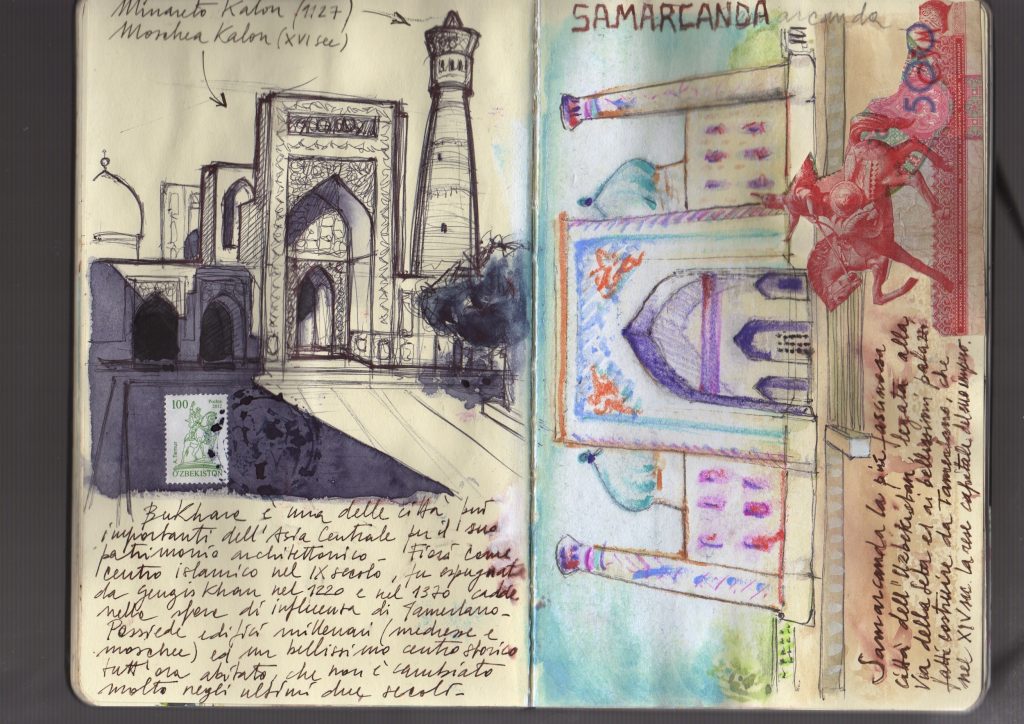 Minareto Kalon (1127)
Moschea Kalon (XVI sec)
100
2017
O'ZBEKISTON
Bukhara è una delle città più
importanti dell'Asia Centrale per il suo
patrimonio architettonico. Fiorì come
centro islamico nel IX secolo, fu espugnata
da Gengis Khan nel 1220 e nel 1370 cadde
nella sfera di influenza di Tamerlano.
Possiede edifici millenari (medresse e
moschee) ed un bellissimo centro storico
tutt'ora abitato, che non è cambiato
molto negli ultimi due secoli.
SAMARCANDA
arcanda
500
Samarcanda la più famosa
città dell'Uzbekistan, legata alla
Via della Seta ed ai bellissimi palazzi
fatti costruire da Tamerlano che
nel XIV sec la rese capitale del suo impero.